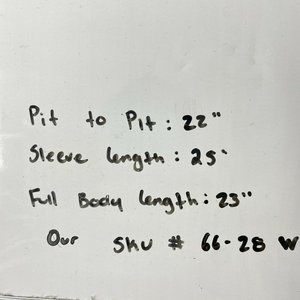 Pit to Pit : 22"
Sleeve length : 25'
Full Body length : 23"
Our SKU # 66-28 W